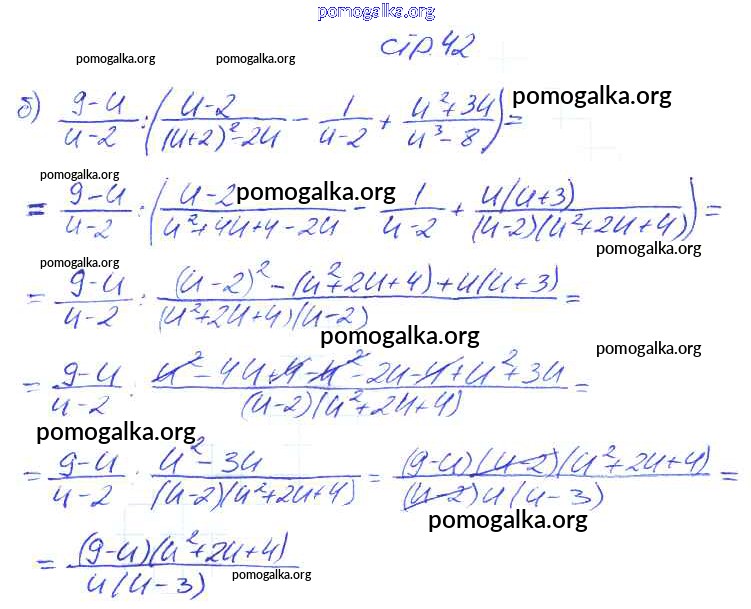 pomogalka.org
стр. 42
pomogalka.org pomogalka.org
б) (9-u)/(u-2) : ((u-2)/((u+2)²-2u) - 1/(u-2) + (u²+3u)/(u³-8)) =
pomogalka.org
pomogalka.org
= (9-u)/(u-2) : ((u-2)/(u²+4u+4-2u) - 1/(u-2) + u(u+3)/((u-2)(u²+2u+4))) =
pomogalka.org
pomogalka.org
pomogalka.org
= (9-u)/(u-2) : ((u-2)²-(u²+2u+4)+u(u+3))/((u²+2u+4)(u-2)) =
pomogalka.org
pomogalka.org
= (9-u)/(u-2) : (u²-4u+4-u²-2u-4+u²+3u)/((u-2)(u²+2u+4)) =
pomogalka.org
= (9-u)/(u-2) : (u²-3u)/((u-2)(u²+2u+4)) = ((9-u)(u-2)(u²+2u+4))/((u-2)u(u-3)) =
pomogalka.org
= ((9-u)(u²+2u+4))/(u(u-3))
pomogalka.org